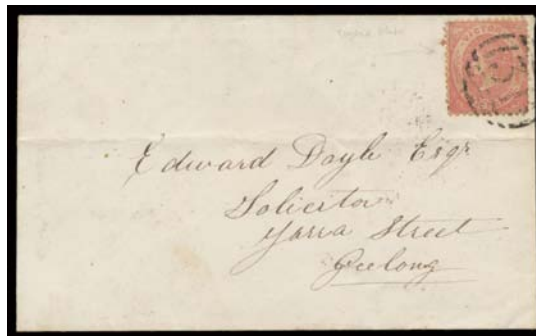 VICTORIA
Edward Doyle Esqr
Solicitor
Yarra Street
Geelong